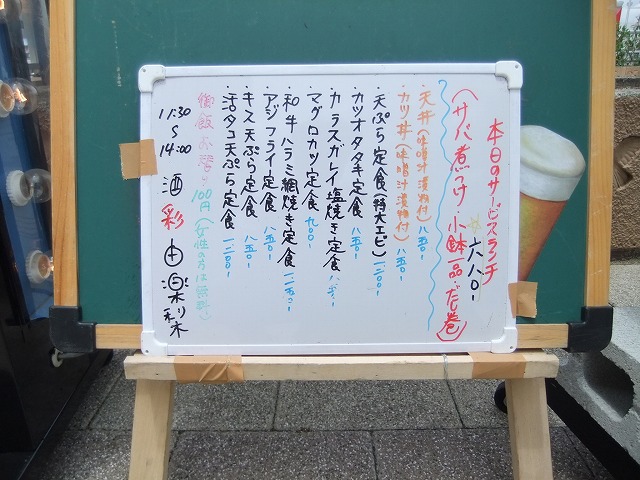 本日のサービスランチ
六八〇-
(サバ煮つけ・小鉢一品・だし巻)
・天丼(味噌汁漬物付)八五〇-
・カツ丼(味噌汁漬物付)八五〇-
・天ぷら定食(特大エビ)一二〇〇-
・カツオタタキ定食 八五〇-
・カラスガレイ塩焼き定食
・マグロカツ定食 九〇〇-
・和牛ハラミ網焼き定食
・アジフライ定食 八五〇-
・キス天ぷら定食 八五〇-
・活タコ天ぷら定食 一一〇〇-
御飯お替り 100円(女性の方は無料)
11:30
〜
14:00
酒彩 由楽梨